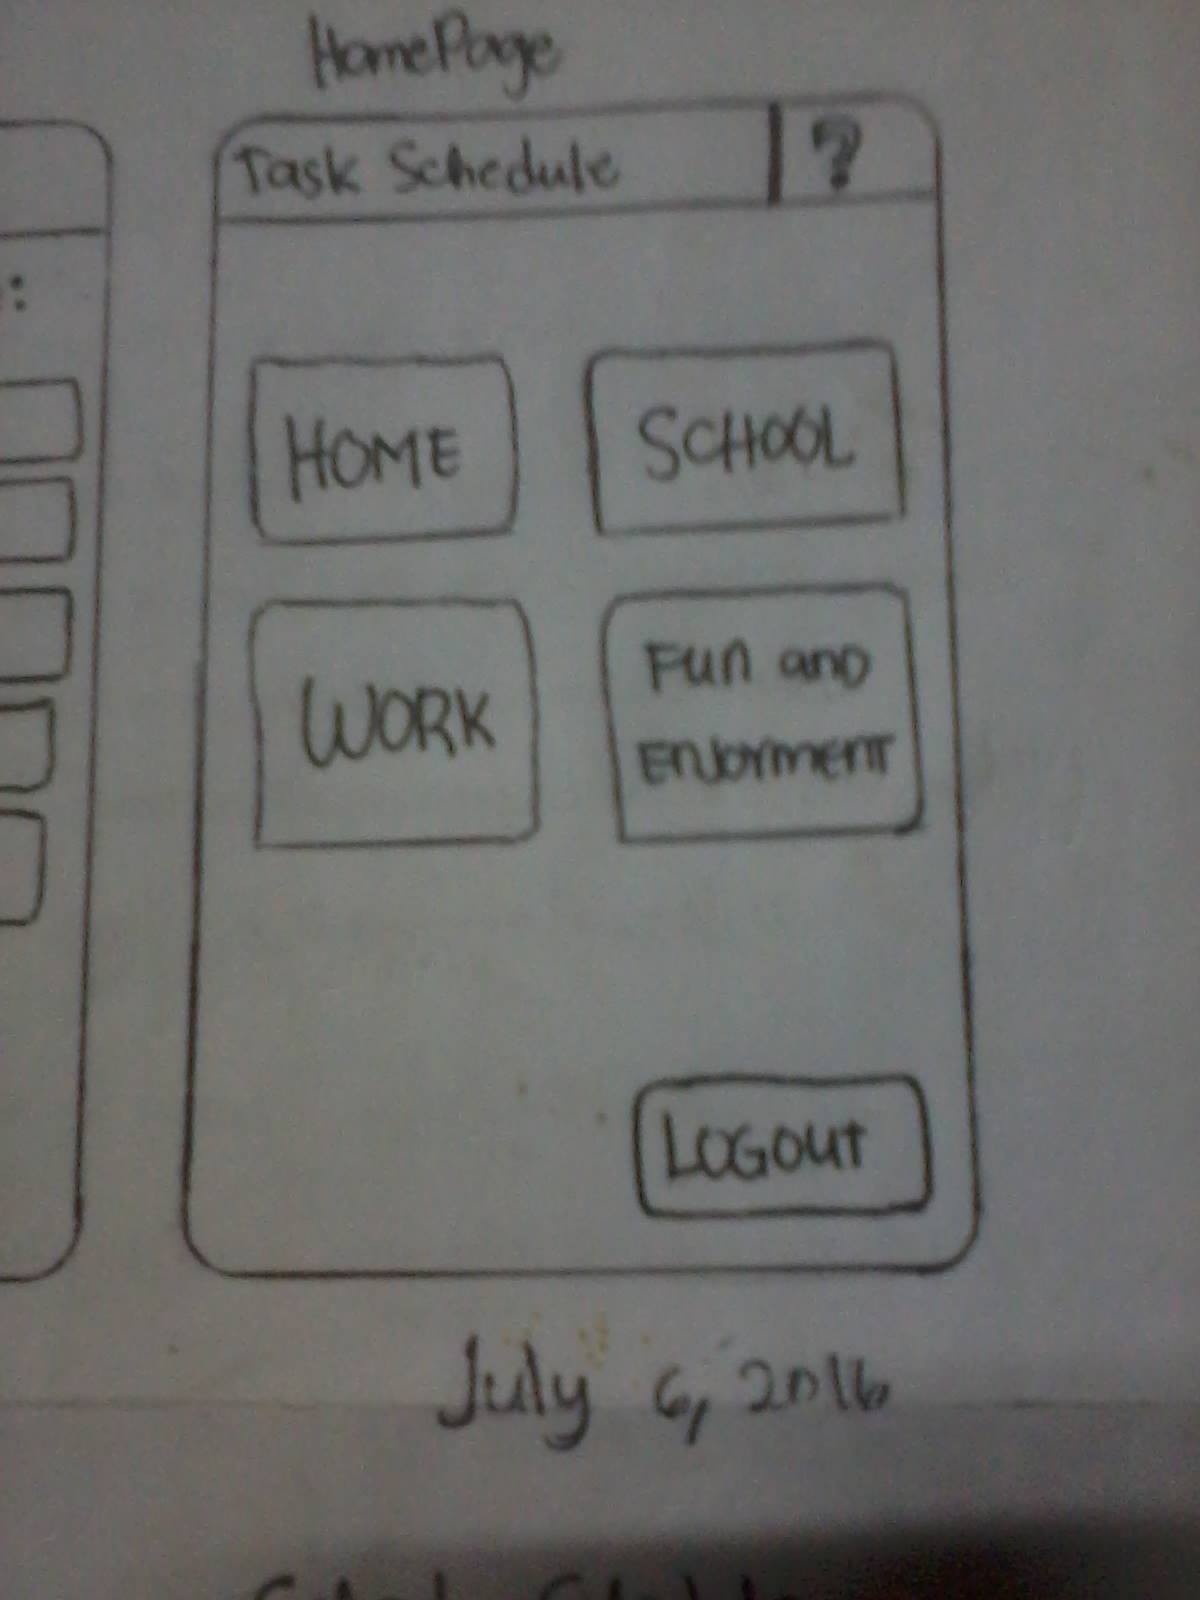 HomePage
Task Schedule ?
:
HOME
SCHOOL
WORK
Fun and
Enjoyment
Logout
July 6, 2016